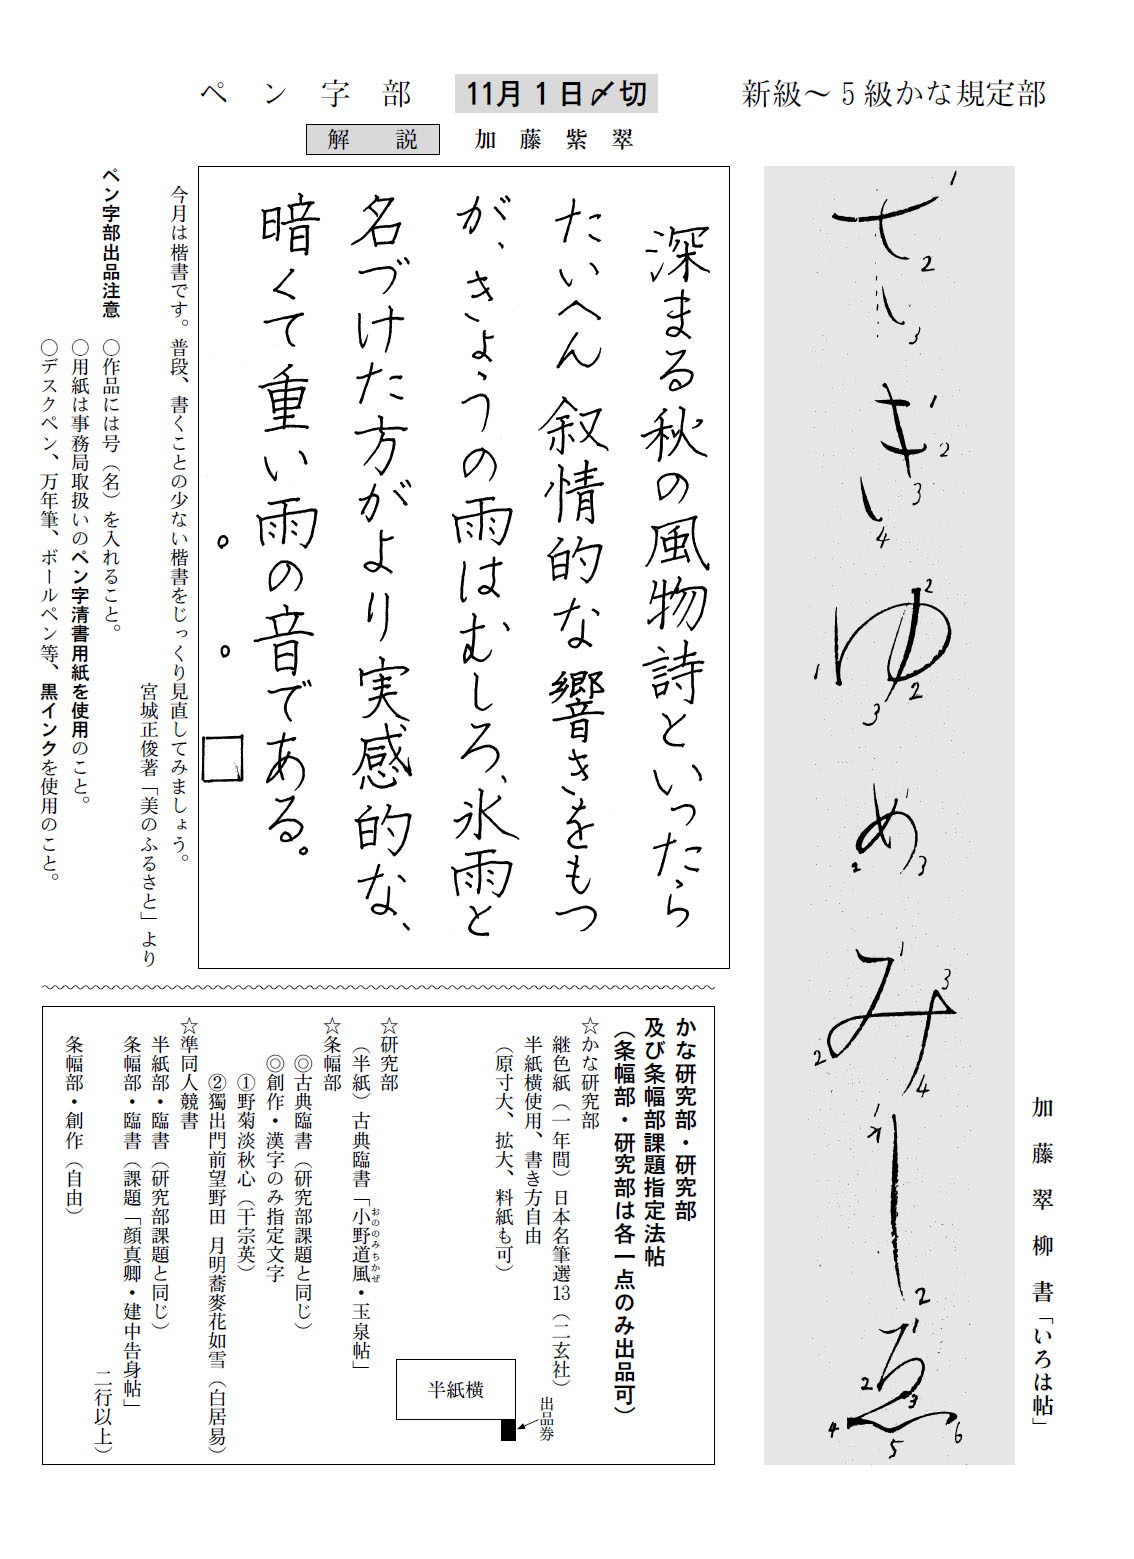 新級〜5級かな規定部
加藤翠柳書「いろは帖」
せしきいゆめみしゑ
ペン字部
11月1日〆切
解説
加藤紫翠
深まる秋の風物詩といったら
たいへん叙情的な響きをもつ
が、きょうの雨はむしろ、氷雨と
名づけた方がより実感的な、
暗くて重い雨の音である。
今月は楷書です。普段、書くことの少ない楷書をじっくり見直してみましょう。
宮城正俊著「美のふるさと」より
ペン字部出品注意
○作品には号(名)を入れること。
○用紙は事務局取扱いのペン字清書用紙を使用のこと。
○デスクペン、万年筆、ボールペン等、黒インクを使用のこと。
かな研究部・研究部
及び条幅部課題指定法帖
(条幅部・研究部は各一点のみ出品可)
☆かな研究部
継色紙(一年間)日本名筆選13(二玄社)
半紙横使用、書き方自由
(原寸大、拡大、料紙も可)
半紙横
出品券
☆研究部
(半紙)古典臨書「小野道風・玉泉帖」
おののみちかぜ
☆条幅部
◎古典臨書(研究部課題と同じ)
◎創作・漢字のみ指定文字
①野菊淡秋心(干宗英)
②獨出門前望野田 月明蕎麥花如雪(白居易)
☆準同人競書
半紙部・臨書(研究部課題と同じ)
条幅部・臨書(課題「顔真卿・建中告身帖」
二行以上)
条幅部・創作(自由)